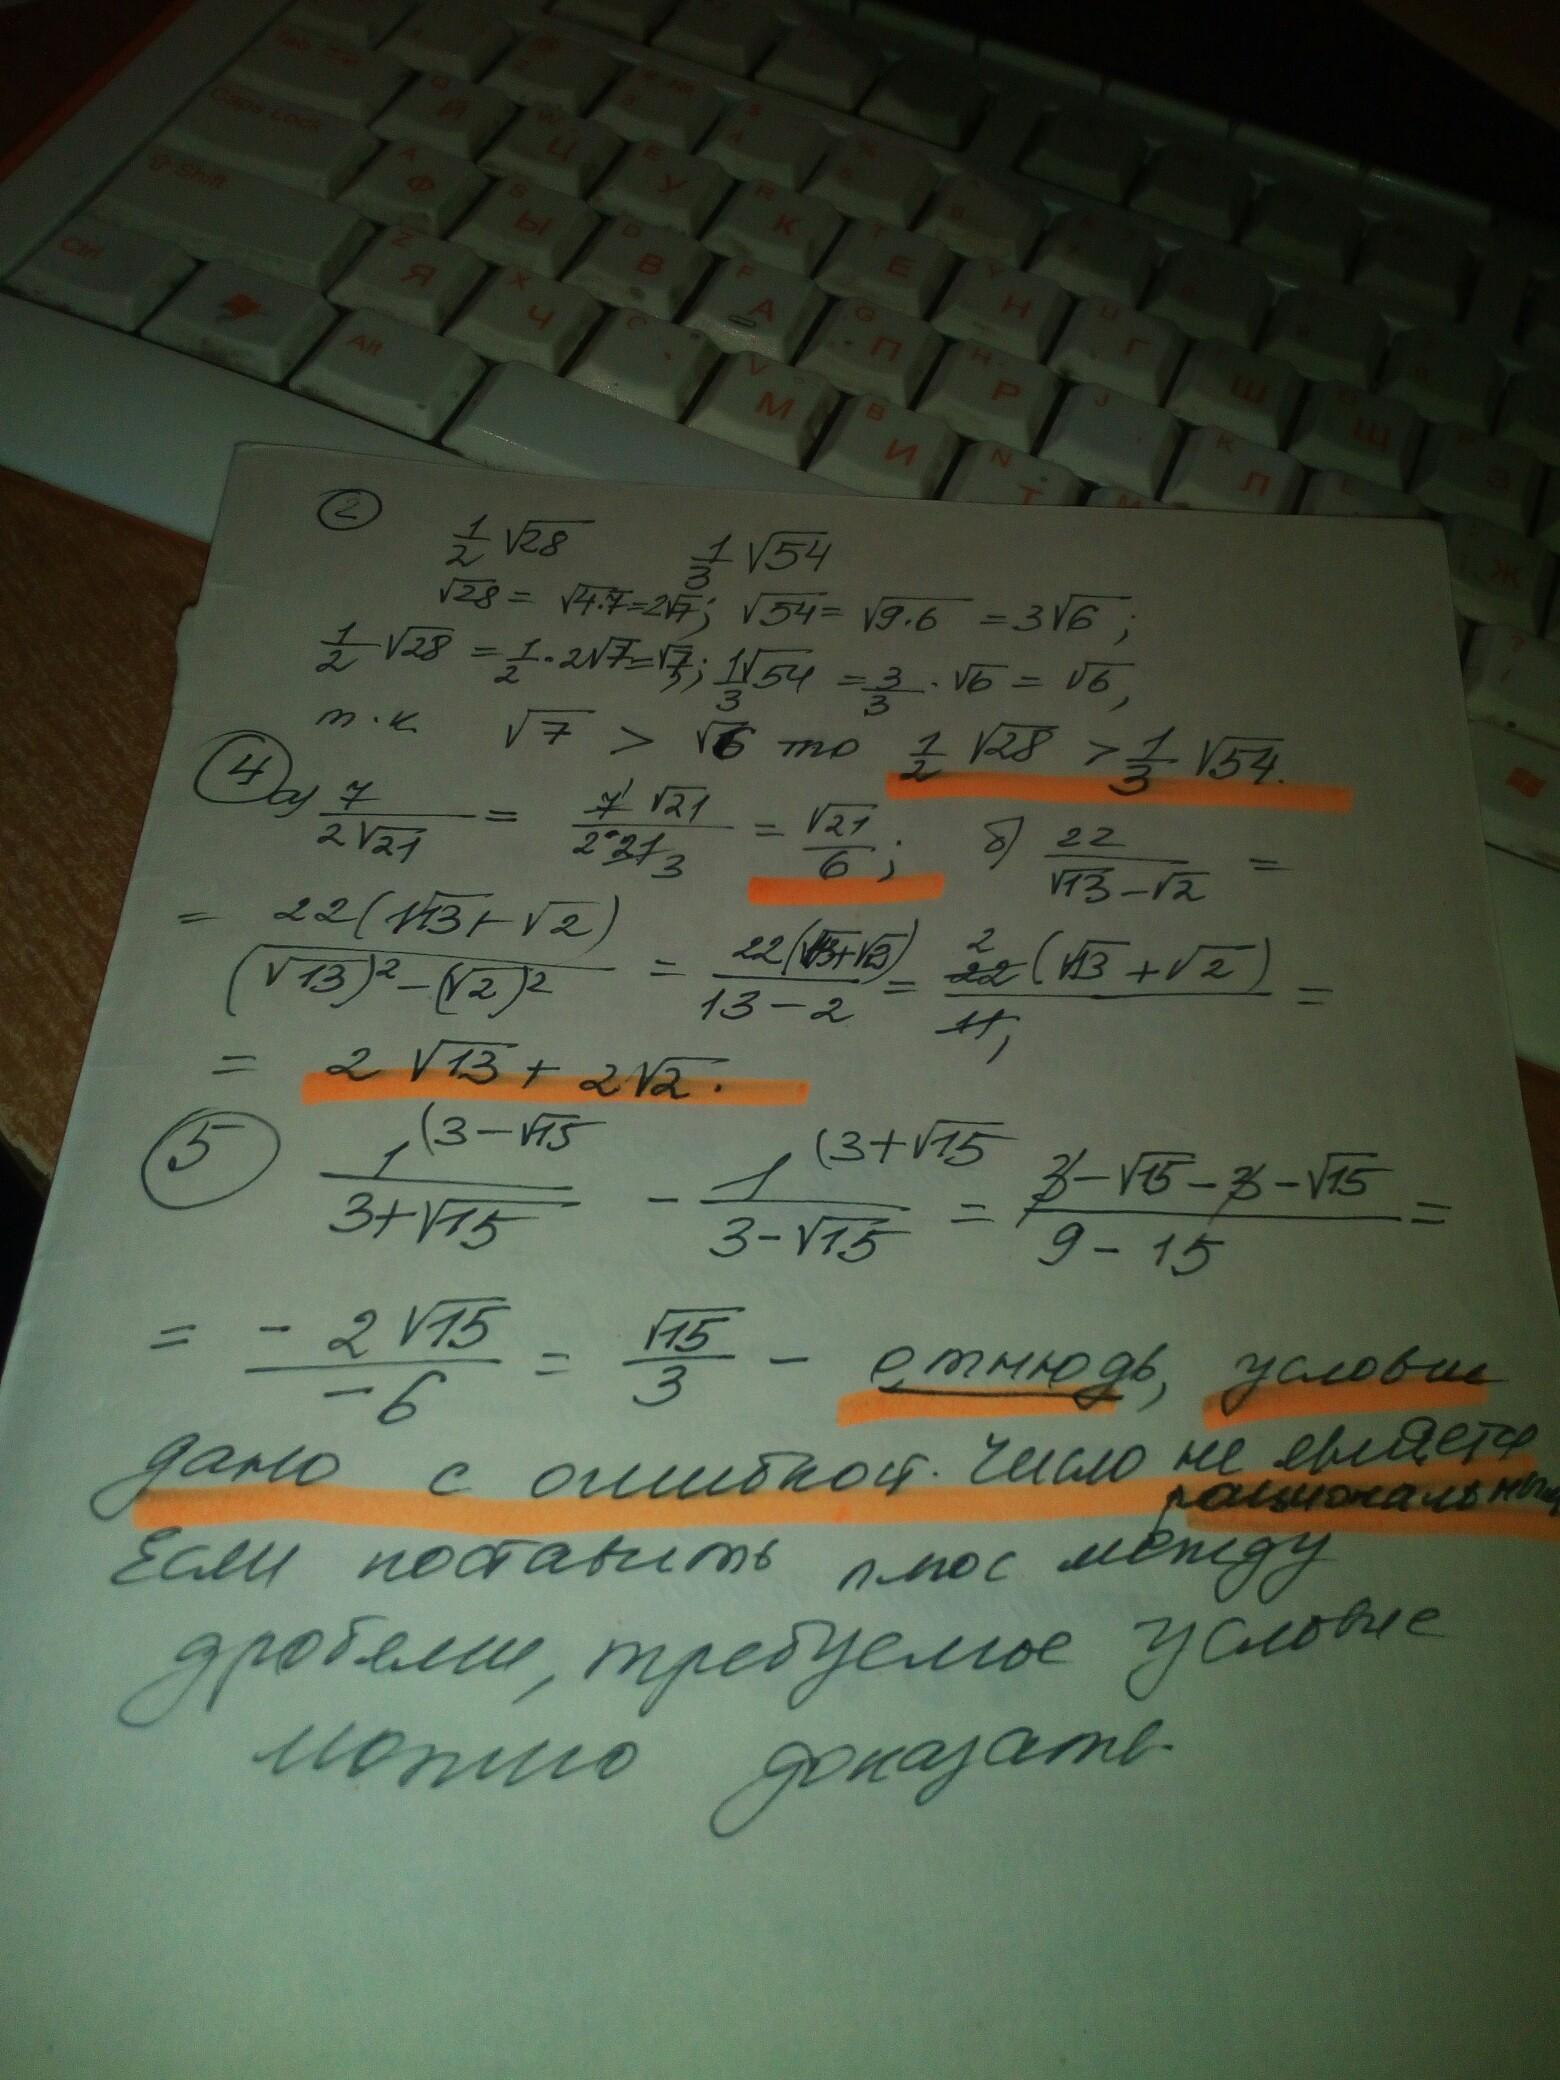 Tab
Caps Lock
Shift
Ctrl
Alt
Q Й
W Ц
E У
R К
T Е
Y Н
U Г
Ш
Щ
З
A Ф
S Ы
D В
F А
G П
H Р
J
K Л
Ж
Z Я
X Ч
C
V М
B И
N Т
2
1/2 √28 1/3 √54
√28 = √4·7=2√7; √54= √9·6 = 3√6;
1/2 √28 = 1/2 · 2√7=√7; 1/3 √54 = 3/3 · √6 = √6,
т.к √7 > √6 то 1/2 √28 > 1/3 √54.
4 а) 7/(2√21) = 7√21/(2·21) = √21/6; б) 22/(√13-√2) =
= 22(√13+√2)/((√13)²-(√2)²) = 22(√13+√2)/(13-2) = 22(√13+√2)/11 =
= 2√13 + 2√2.
5 1/(3+√15) (3-√15 - 1/(3-√15) (3+√15 = (3-√15-3-√15)/(9-15) =
= -2√15/-6 = √15/3 - отнюдь, условие
дано с ошибкой. Число не является
рациональным
Если поставить плюс между
дробями, требуемое условие
можно доказать